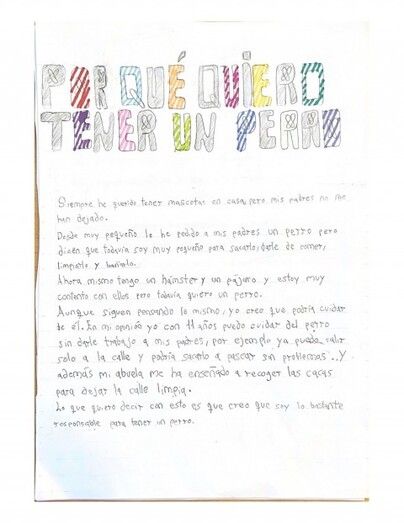 POR QUÉ QUIERO
TENER UN PERRO
Siempre he querido tener mascotas en casa, pero mis padres no me
han dejado.
Desde muy pequeño le he pedido a mis padres un perro pero
dicen que todavía soy muy pequeño para sacarlo, darle de comer,
limpiarlo y bañarlo.
Ahora mismo tengo un hámster y un pájaro y estoy muy
contento con ellos pero todavía quiero un perro.
Aunque siguen pensando lo mismo, yo creo que podría cuidar
de él. En mi opinión yo con 11 años puedo cuidar del perro
sin darle trabajo a mis padres, por ejemplo ya puedo salir
solo a la calle y podría sacarlo a pasear sin problemas.. Y
además mi abuela me ha enseñado a recoger las cacas
para dejar la calle limpia.
Lo que quiero decir con esto es que creo que soy lo bastante
responsable para tener un perro.